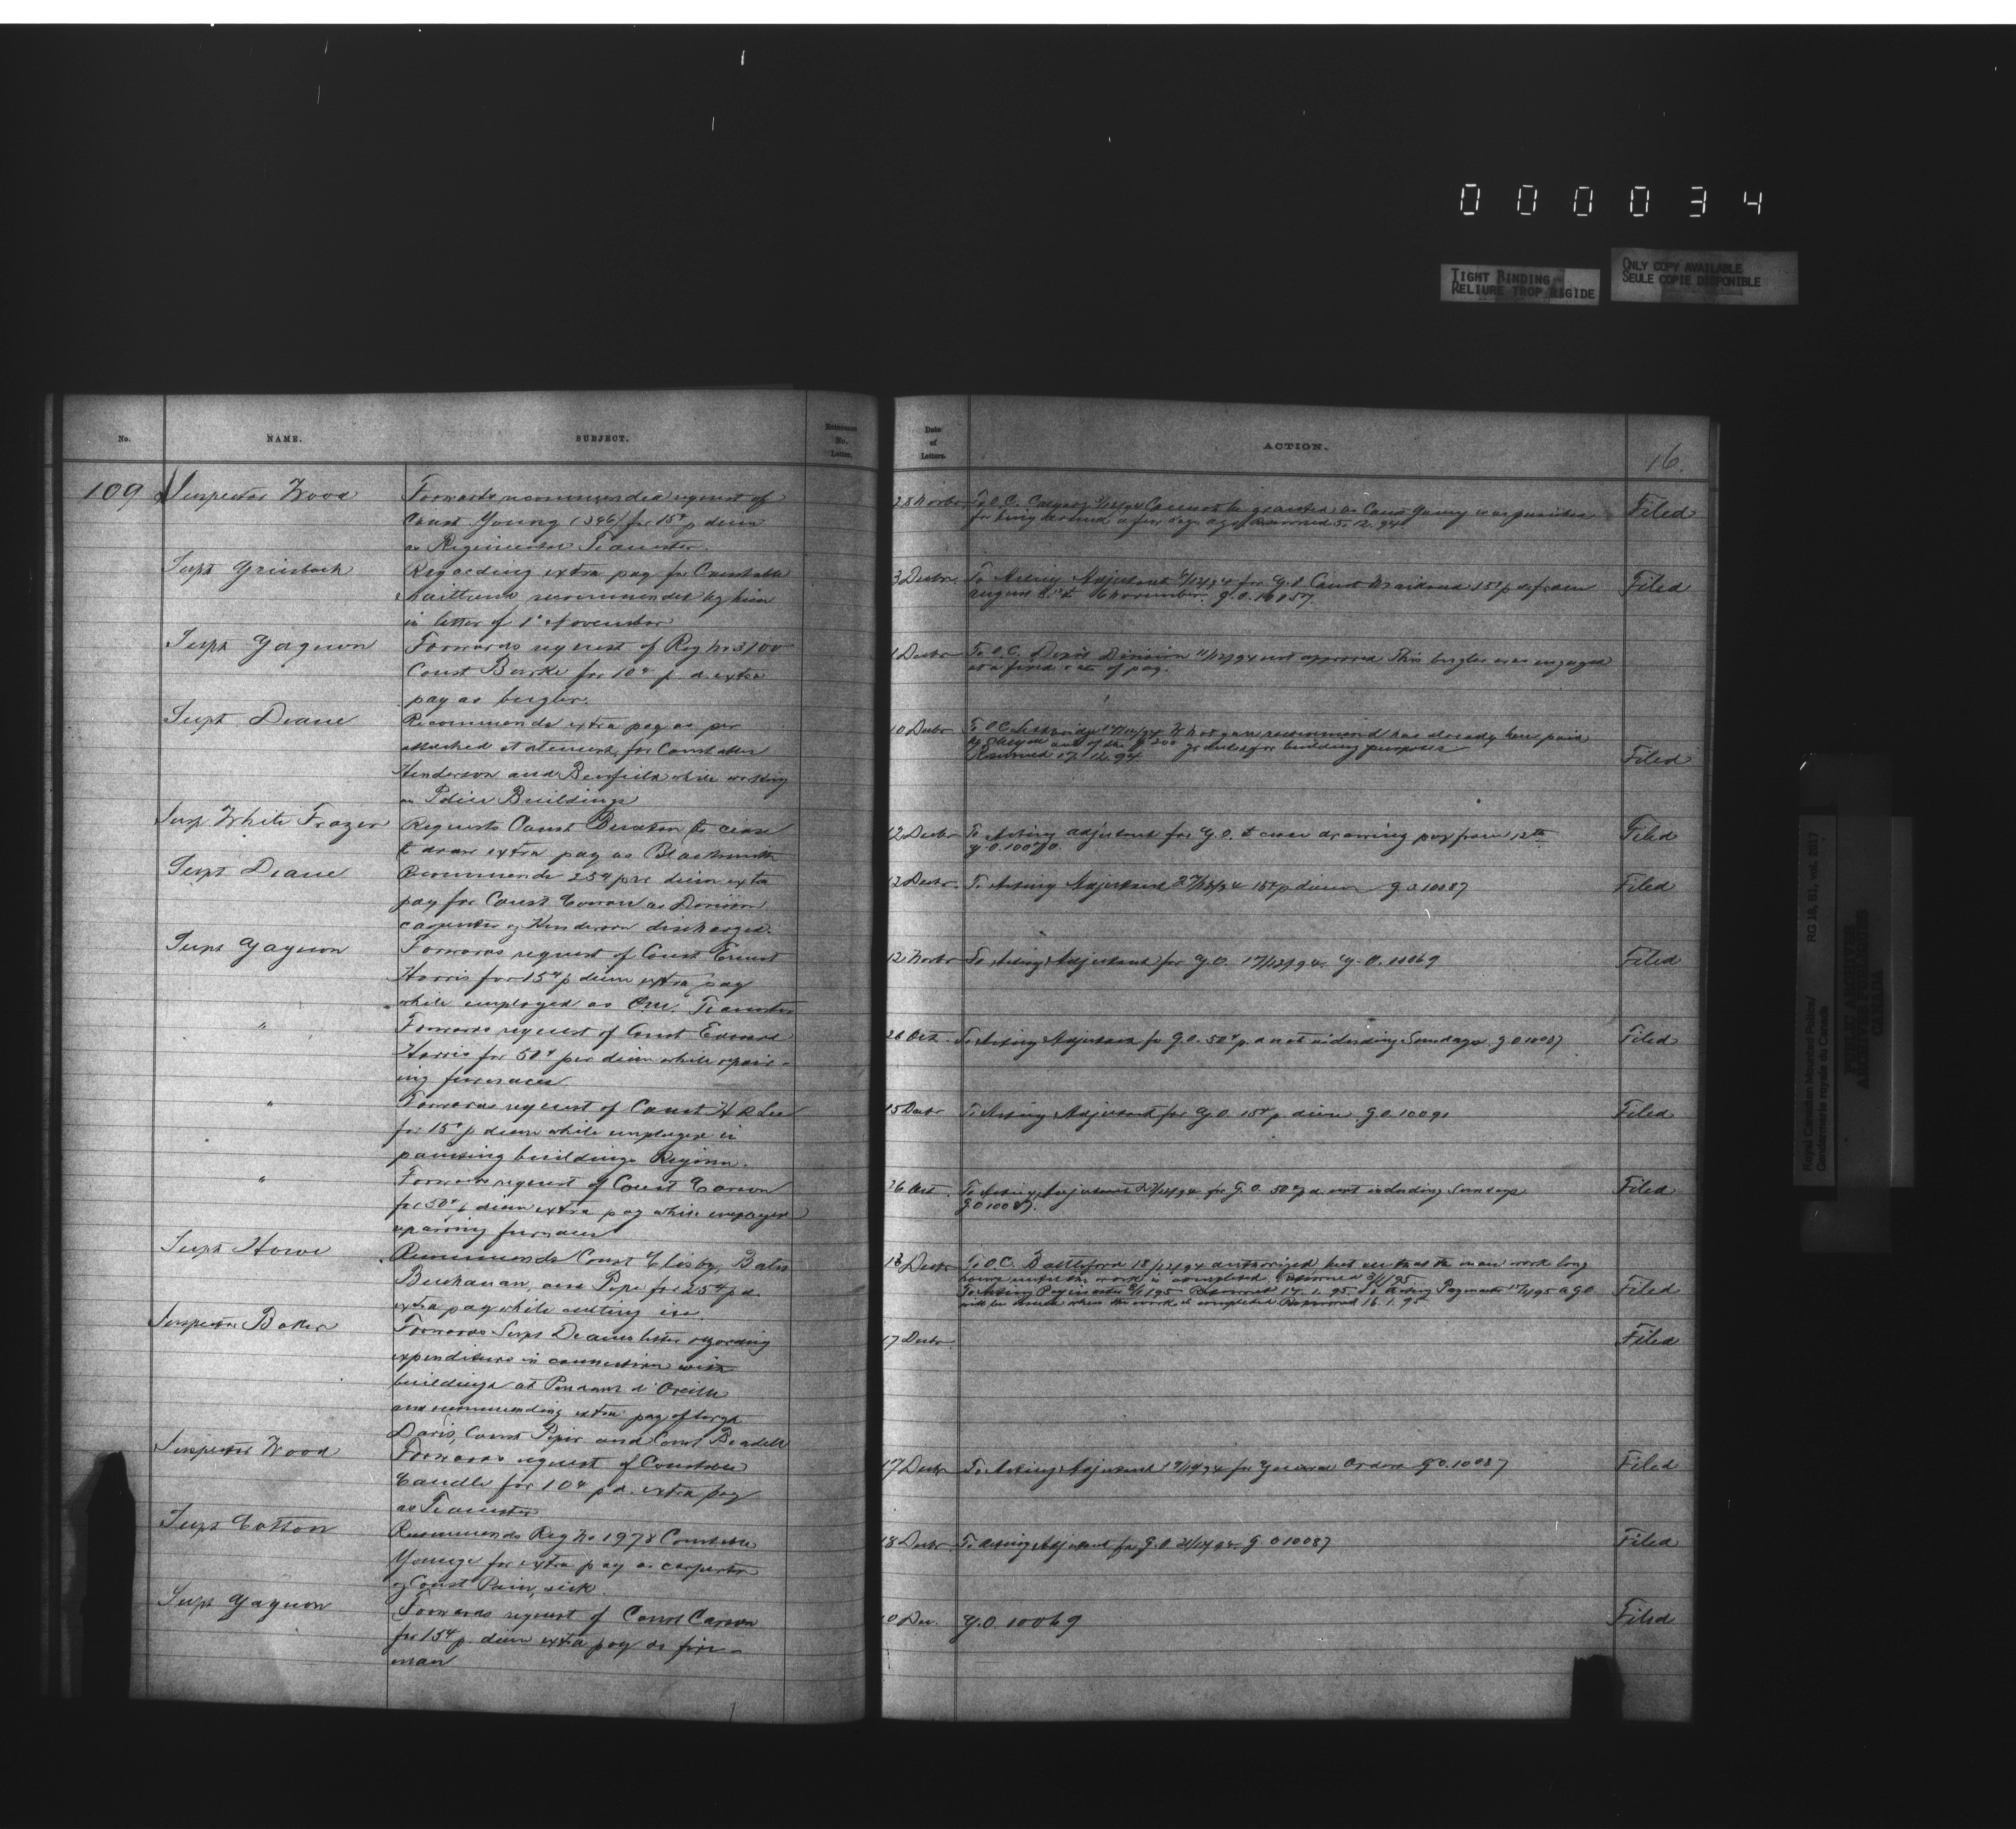 000034
TIGHT BINDING
RELIURE TROP RIGIDE
ONLY COPY AVAILABLE
SEULE COPIE DISPONIBLE
No.
NAME.
SUBJECT.
Reference No. Letter.
Date of Letters.
ACTION.
16.
109 Inspector Wood
Forwards recommended request of
Const Young (396) for 15¢ p diem
as Regimental Teamster.
28 Novbr To O.C. Calgary Cannot be granted as Const Young was punished
for being a few days ago Returned 5.12.94
Filed
Supt Griesbach
Regarding extra pay for Constable
recommended by him
in letter of 1st November
3 Decbr To Acting Adjutant for G.O. Const 15¢ p d from
August 8th to 6 November. G.O.
Filed
Supt Gagnon
Forwards request of Reg No 3100
Const Burke for 10¢ p. d. extra
pay as bugler.
1 Decbr To O.C. Depot Division 11/12/94 not approved This bugler was engaged
at a fixed rate of pay.
Supt Deane
Recommends extra pay as per
attached statement, for Constables
Henderson and Benfield while working
on Police Buildings
10 Decbr To O.C. Lethbridge What you recommend has already been paid
by cheque out of the $200 granted for building purposes
Returned 17.12.94
Filed
Insp. White Frazer
Requests Const Denton to cease
to draw extra pay as Blacksmith
12 Decbr To Acting Adjutant for G.O. to cease drawing pay from 12th
G.O. 10070.
Filed
Supt Deane
Recommends 25¢ per diem extra
pay for Const Conon as Division
carpenter vy Henderson discharged.
12 Decbr. To Acting Adjutant 27/12/94 15¢ p diem G.O. 10087
Filed
Supt Gagnon
Forwards request of Const Ernest
Harris for 15¢ p diem extra pay
while employed as Teamster
12 Novbr To Acting Adjutant for G.O. 17/12/94. G.O. 10069
Filed
"
Forwards request of Const Edward
Harris for 50¢ per diem while repair-
ing furnaces
26 Oct. To Acting Adjutant for G.O. 50¢ p. d not including Sundays. G.O 10087
Filed
"
Forwards request of Const H R Lee
for 15¢ p diem while employed in
painting buildings Regina.
15 Decbr To Acting Adjutant for G.O. 15¢ p. diem. G.O. 10091
Filed
"
Forwards request of Const Carson
for 50¢ p diem extra pay while employed
repairing furnaces
26 Oct. To Acting Adjutant 27/12/94 for G.O. 50¢ p d. not including Sundays
G.O 10087.
Filed
Supt Howe
Recommends Const Elisby, Bates
Buchanan, and Pope for 25¢ p d.
extra pay while cutting ice.
13 Decbr To O.C. Battleford 18/12/94 authorized but see that the men work long
hours until the work is completed. Returned
To Acting Paymaster Returned 14.1.95 To Acting Paymaster 15/1/95 a G.O.
will be issued when the work is completed Returned 16.1.95
Filed
Inspector Baker
Forwards Supt Deanes letter regarding
expenditure in connection with
buildings at Pendant d'Oreille
and recommending extra pay of Sergt
Davis, Const Piper and Const Beadell
17 Decbr
Filed
Inspector Wood
Forwards request of Constable
Caudle for 10¢ p d. extra pay
as Teamster
17 Decbr To Acting Adjutant for General Orders G.O. 10087
Filed
Supt Cotton
Recommends Reg No 1978 Constable
Younge for extra pay as carpenter
vy Const Pain, sick.
18 Decbr To Acting Adjutant for G.O. G.O 10087
Filed
Supt Gagnon
Forwards request of Const Carson
for 15¢ p. diem extra pay as fire-
man
10 Dec. G.O. 10069
Filed
Royal Canadian Mounted Police/
Gendarmerie royale du Canada
RG 18, B3, vol. 2017
PUBLIC ARCHIVES
ARCHIVES PUBLIQUES
CANADA